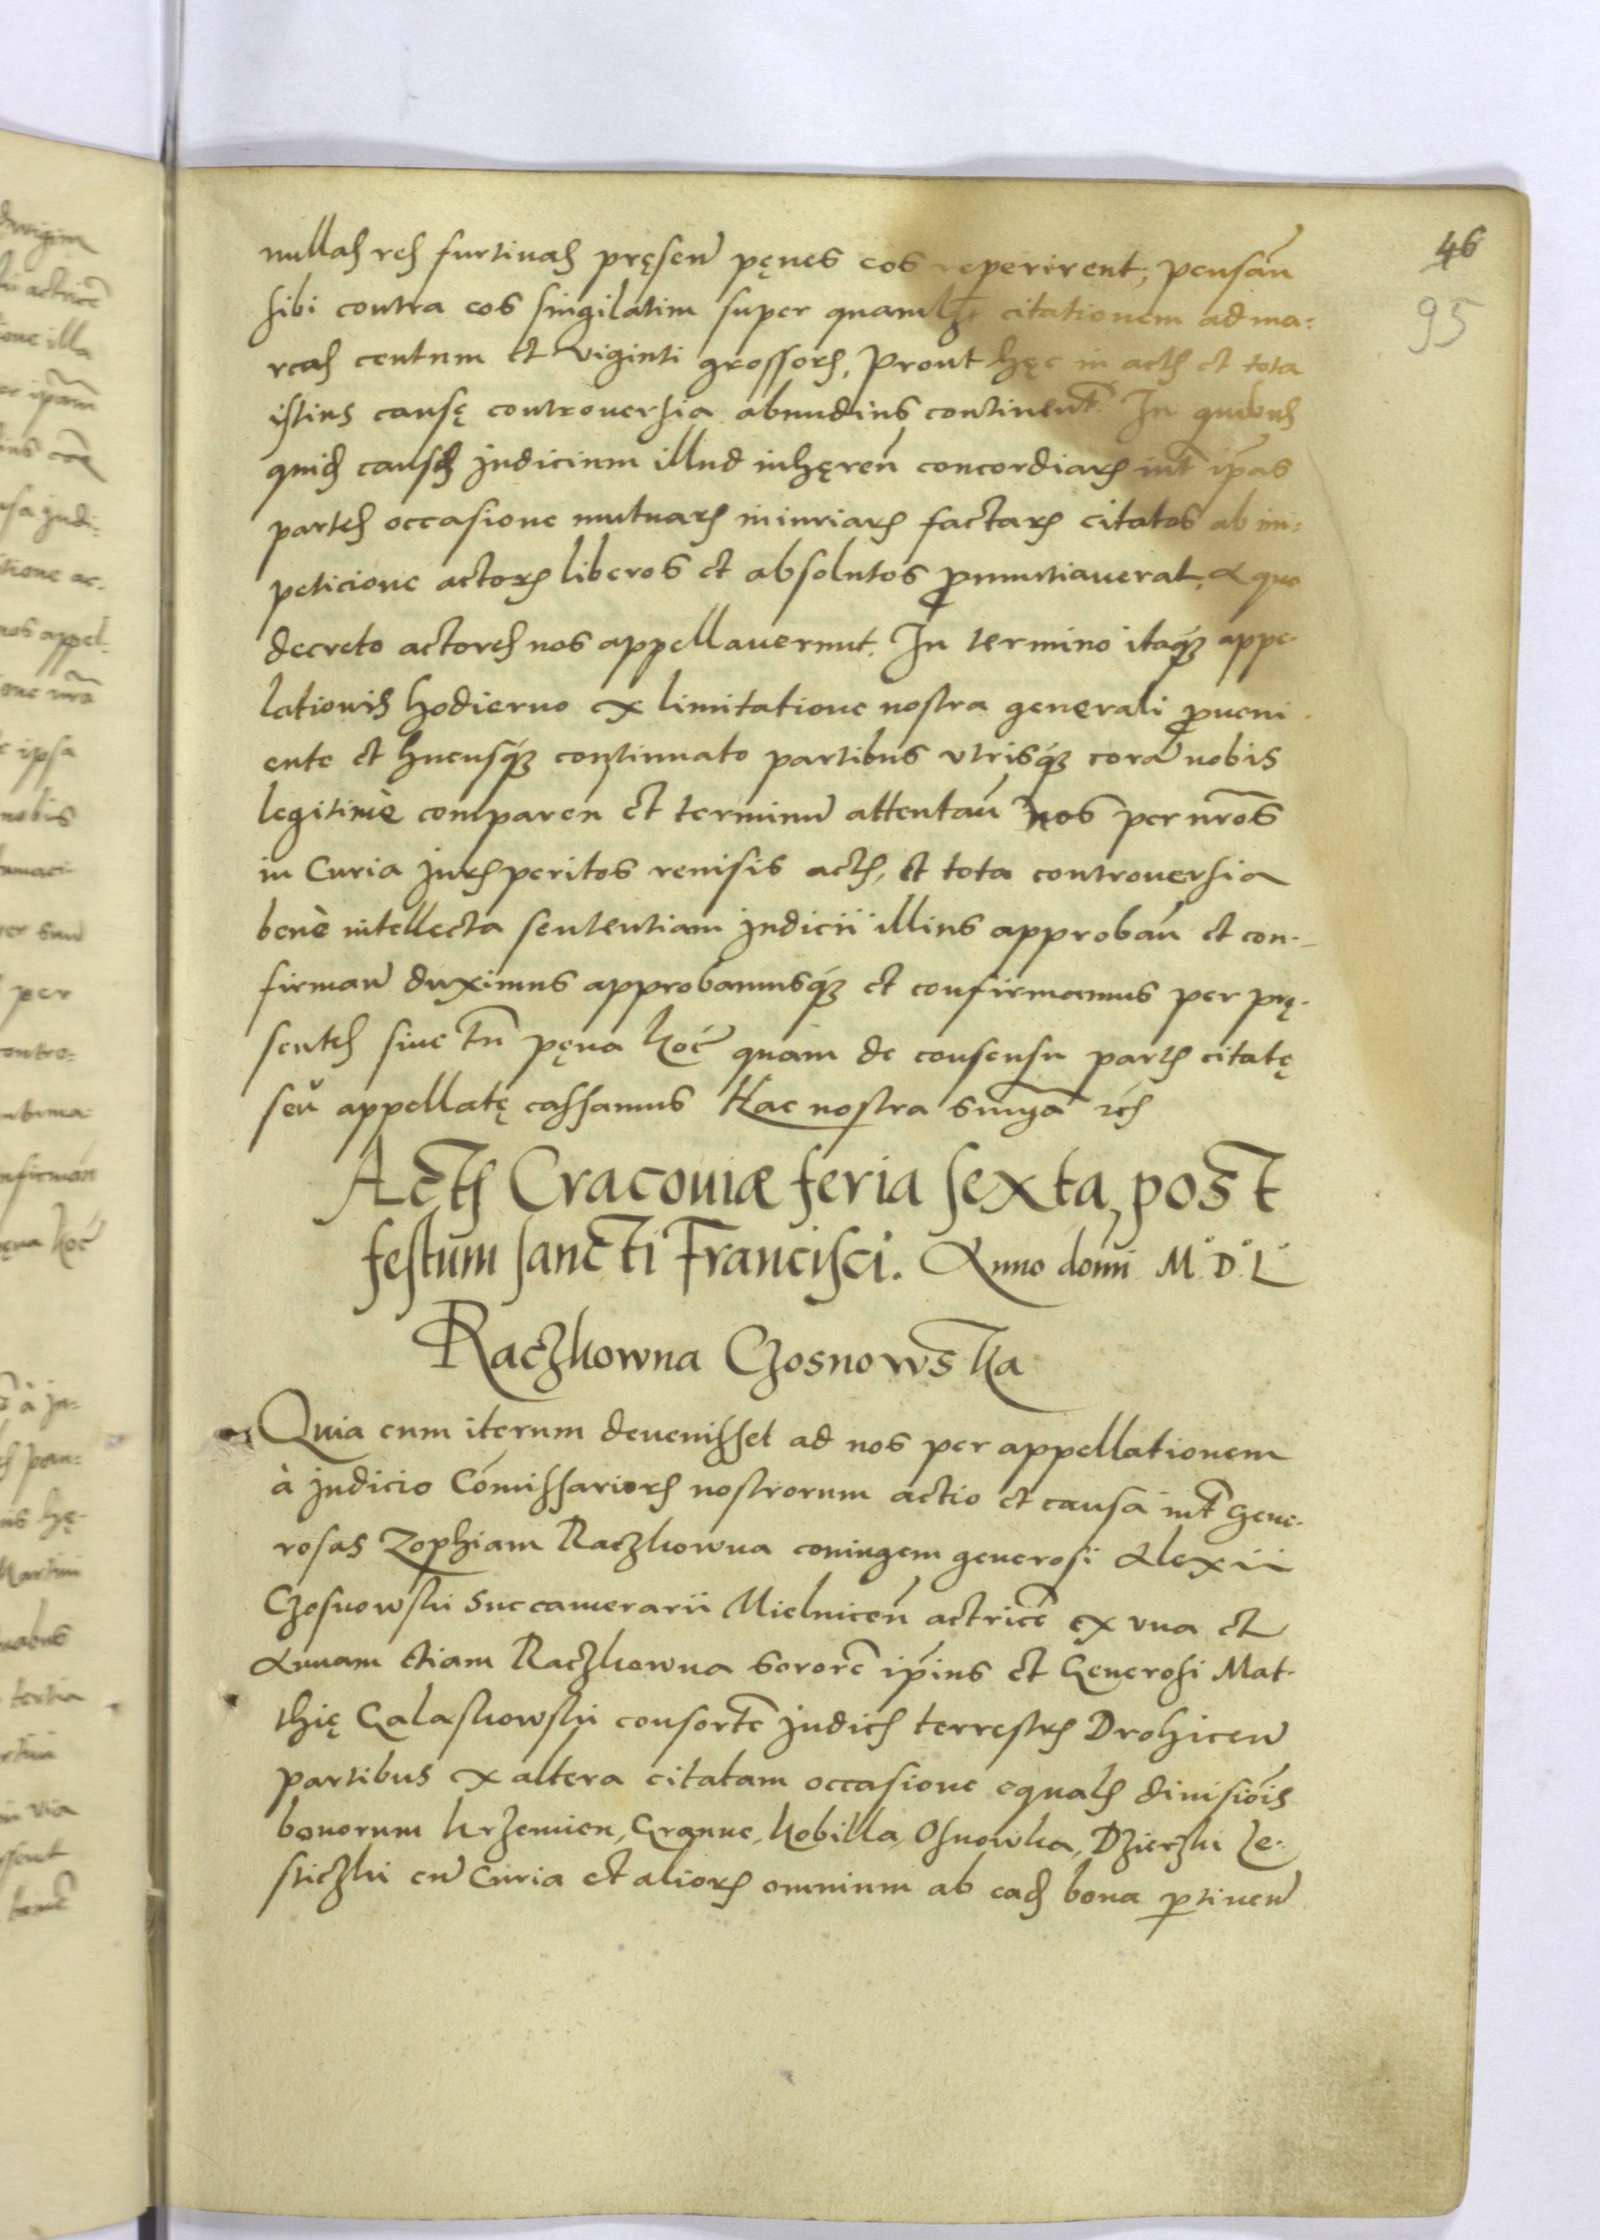 46
95
nullas res furtivas pręsen̄ pęnes eos reperirent; pensan̄
sibi contra eos singilatim super quamlꝫ citationem ad ma:
rcas centum et viginti grossorꝝ, Prout hęc in actis et tota
istius causę controuersia abundius continent̄. In quibus
quid causis judicium illud inhęren̄ concordiarꝝ int̄ ip̄as
partes occasione mutuarꝝ iniuriarꝝ factarꝝ citatos ab im:
peticione actorꝝ liberos et absolutos ꝓnuntiauerat, A quo
decreto actores nos appellauerunt. In termino itaqꝫ appe-
lationis hodierno ex limitatione nostra generali ꝓueni
ente et hucusqꝫ continuato partibus vtrisqꝫ corā nobis
legitimè comparen̄ et terminū attentan̄ nos per nr̄os
in Curia jurisperitos reuisis actis, et tota controuersia
benè intellecta sententiam judicii illius approban̄ et con-
firman̄ duximus approbamusqꝫ et confirmamus per prę-
sentes sine tn̄ pęna Koc̄ quam de consensu partis citatę
seu appellatę cassamus Hac nostra sn̄nia rc̄s
Actis Cracouiæ feria sexta, post
festum sancti Francisci. Anno domi M° D° L°
Raczkowna Czosnowska
Quia cum iterum deuenisset ad nos per appellationem
à judicio Com̄issariorꝝ nostrorum actio et causa int̄ Gene-
rosas Zophiam Raczkowna coniugem generosi Alexii
Czosnowski Succamerarii Mielnicen̄ actricē ex vna et
Annam etiam Raczkowna sororē ip̄ius et Generosi Mat-
thię Galaskowski consortē judicis terrestris Drohicen̄
partibus ex altera citatam occasione equalis diuisiōis
bonorum Krzemien, Granne, Kobilla, Osnowka, Dzierzki Le-
sticzki cū Curia et aliorꝝ omnium ab eadꝫ bona ꝑtinen̄